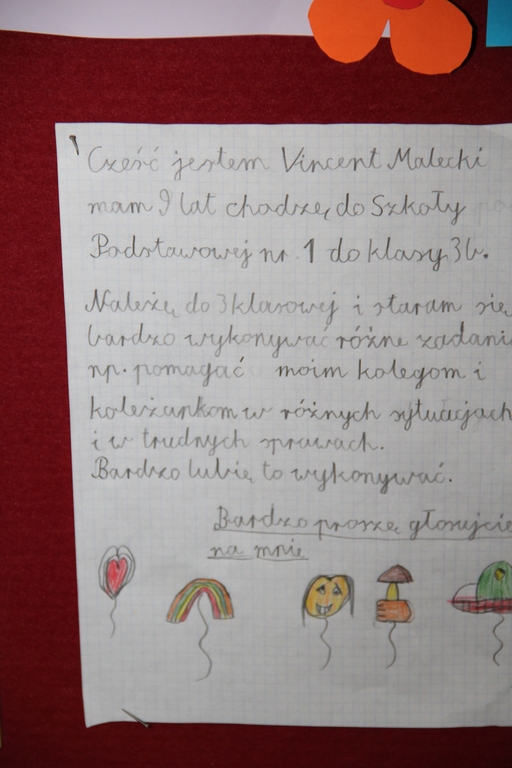 Cześć jestem Vincent Malecki
mam 9 lat chodzę do Szkoły
Podstawowej nr 1 do klasy 3b.
Należę do 3klasowej i staram się
bardzo wykonywać różne zadani
np. pomagać moim kolegom i
koleżankom w różnych sytuacjach
i w trudnych sprawach.
Bardzo lubię to wykonywać.
Bardzo proszę głosujcie
na mnie